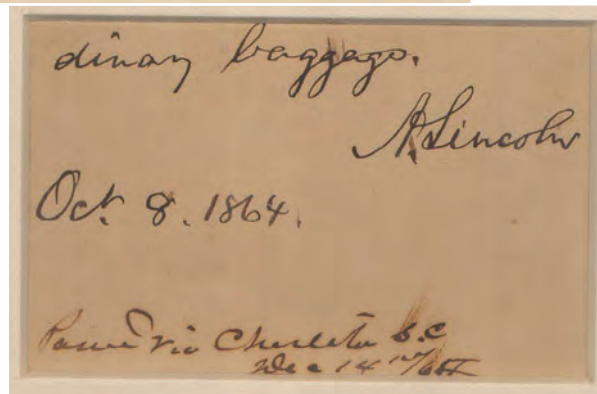 dinary baggage.
A. Lincoln
Oct. 8. 1864.
Passed via Charleston S.C
Dec 14th/64